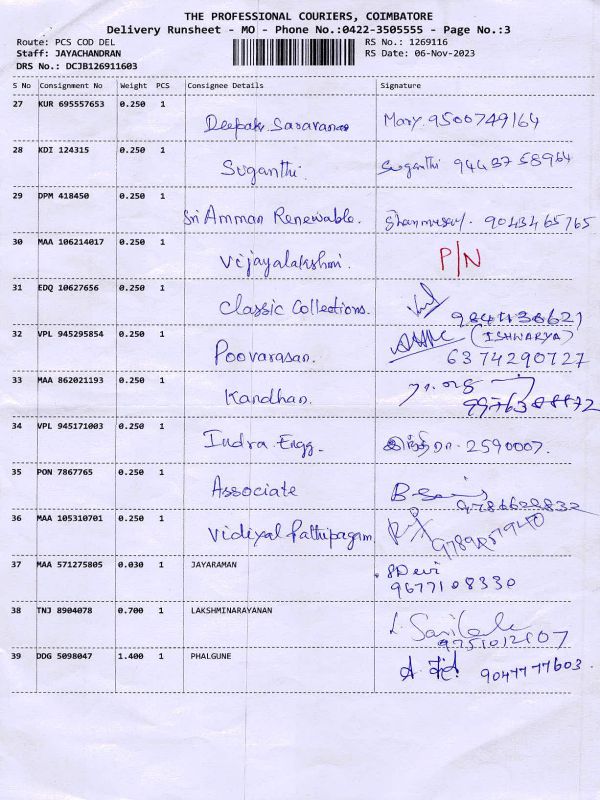 THE PROFESSIONAL COURIERS, COIMBATORE
Delivery Runsheet - MO - Phone No.:0422-3505555 - Page No.:3
Route: PCS COD DEL
RS No.: 1269116
Staff: JAYACHANDRAN
RS Date: 06-Nov-2023
DRS No.: DCJB126911603
S No Consignment No Weight PCS Consignee Details Signature
27 KUR 695557653 0.250 1 Deepak Saravanan Mary. 9500749164
28 KDI 124315 0.250 1 Suganthi Suganthi 9443758964
29 DPM 418450 0.250 1 Sri Amman Renewable. 9043465765
30 MAA 106214017 0.250 1 Vijayalakshmi. P/N
31 EDQ 10627656 0.250 1 Classic Collections.
32 VPL 945295854 0.250 1 Poovarasan. (ISHWARYA)
6374290727
33 MAA 862021193 0.250 1 Kandhan.
34 VPL 945171003 0.250 1 Indra Engg. இந்திரா. 2590007.
35 PON 7867765 0.250 1 Associate
36 MAA 105310701 0.250 1 Vidiyal Pathipagam.
37 MAA 571275805 0.030 1 JAYARAMAN Devi
9677108330
38 TNJ 8904078 0.700 1 LAKSHMINARAYANAN
9751012107
39 DDG 5098047 1.400 1 PHALGUNE 9047777603.